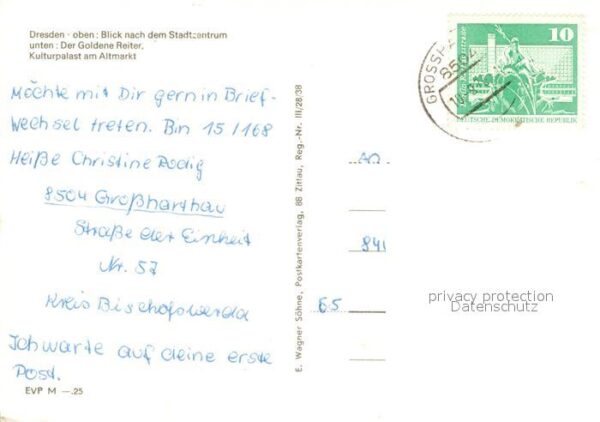 Dresden · oben: Blick nach dem Stadtzentrum
unten: Der Goldene Reiter,
Kulturpalast am Altmarkt
Möchte mit Dir gern in Brief-
wechsel treten. Bin 15 / 168
Heiße Christine Rodig
8504 Großharthau
Straße der Einheit
Nr. 57
Kreis Bischofswerda
Ich warte auf deine erste
Post.
EVP M —.25
E. Wagner Söhne, Postkartenverlag, 88 Zittau, Reg.-Nr. III/28/38
GROSSHA
8504
10
DEUTSCHE DEMOKRATISCHE REPUBLIK
An.
841
65
privacy protection
Datenschutz